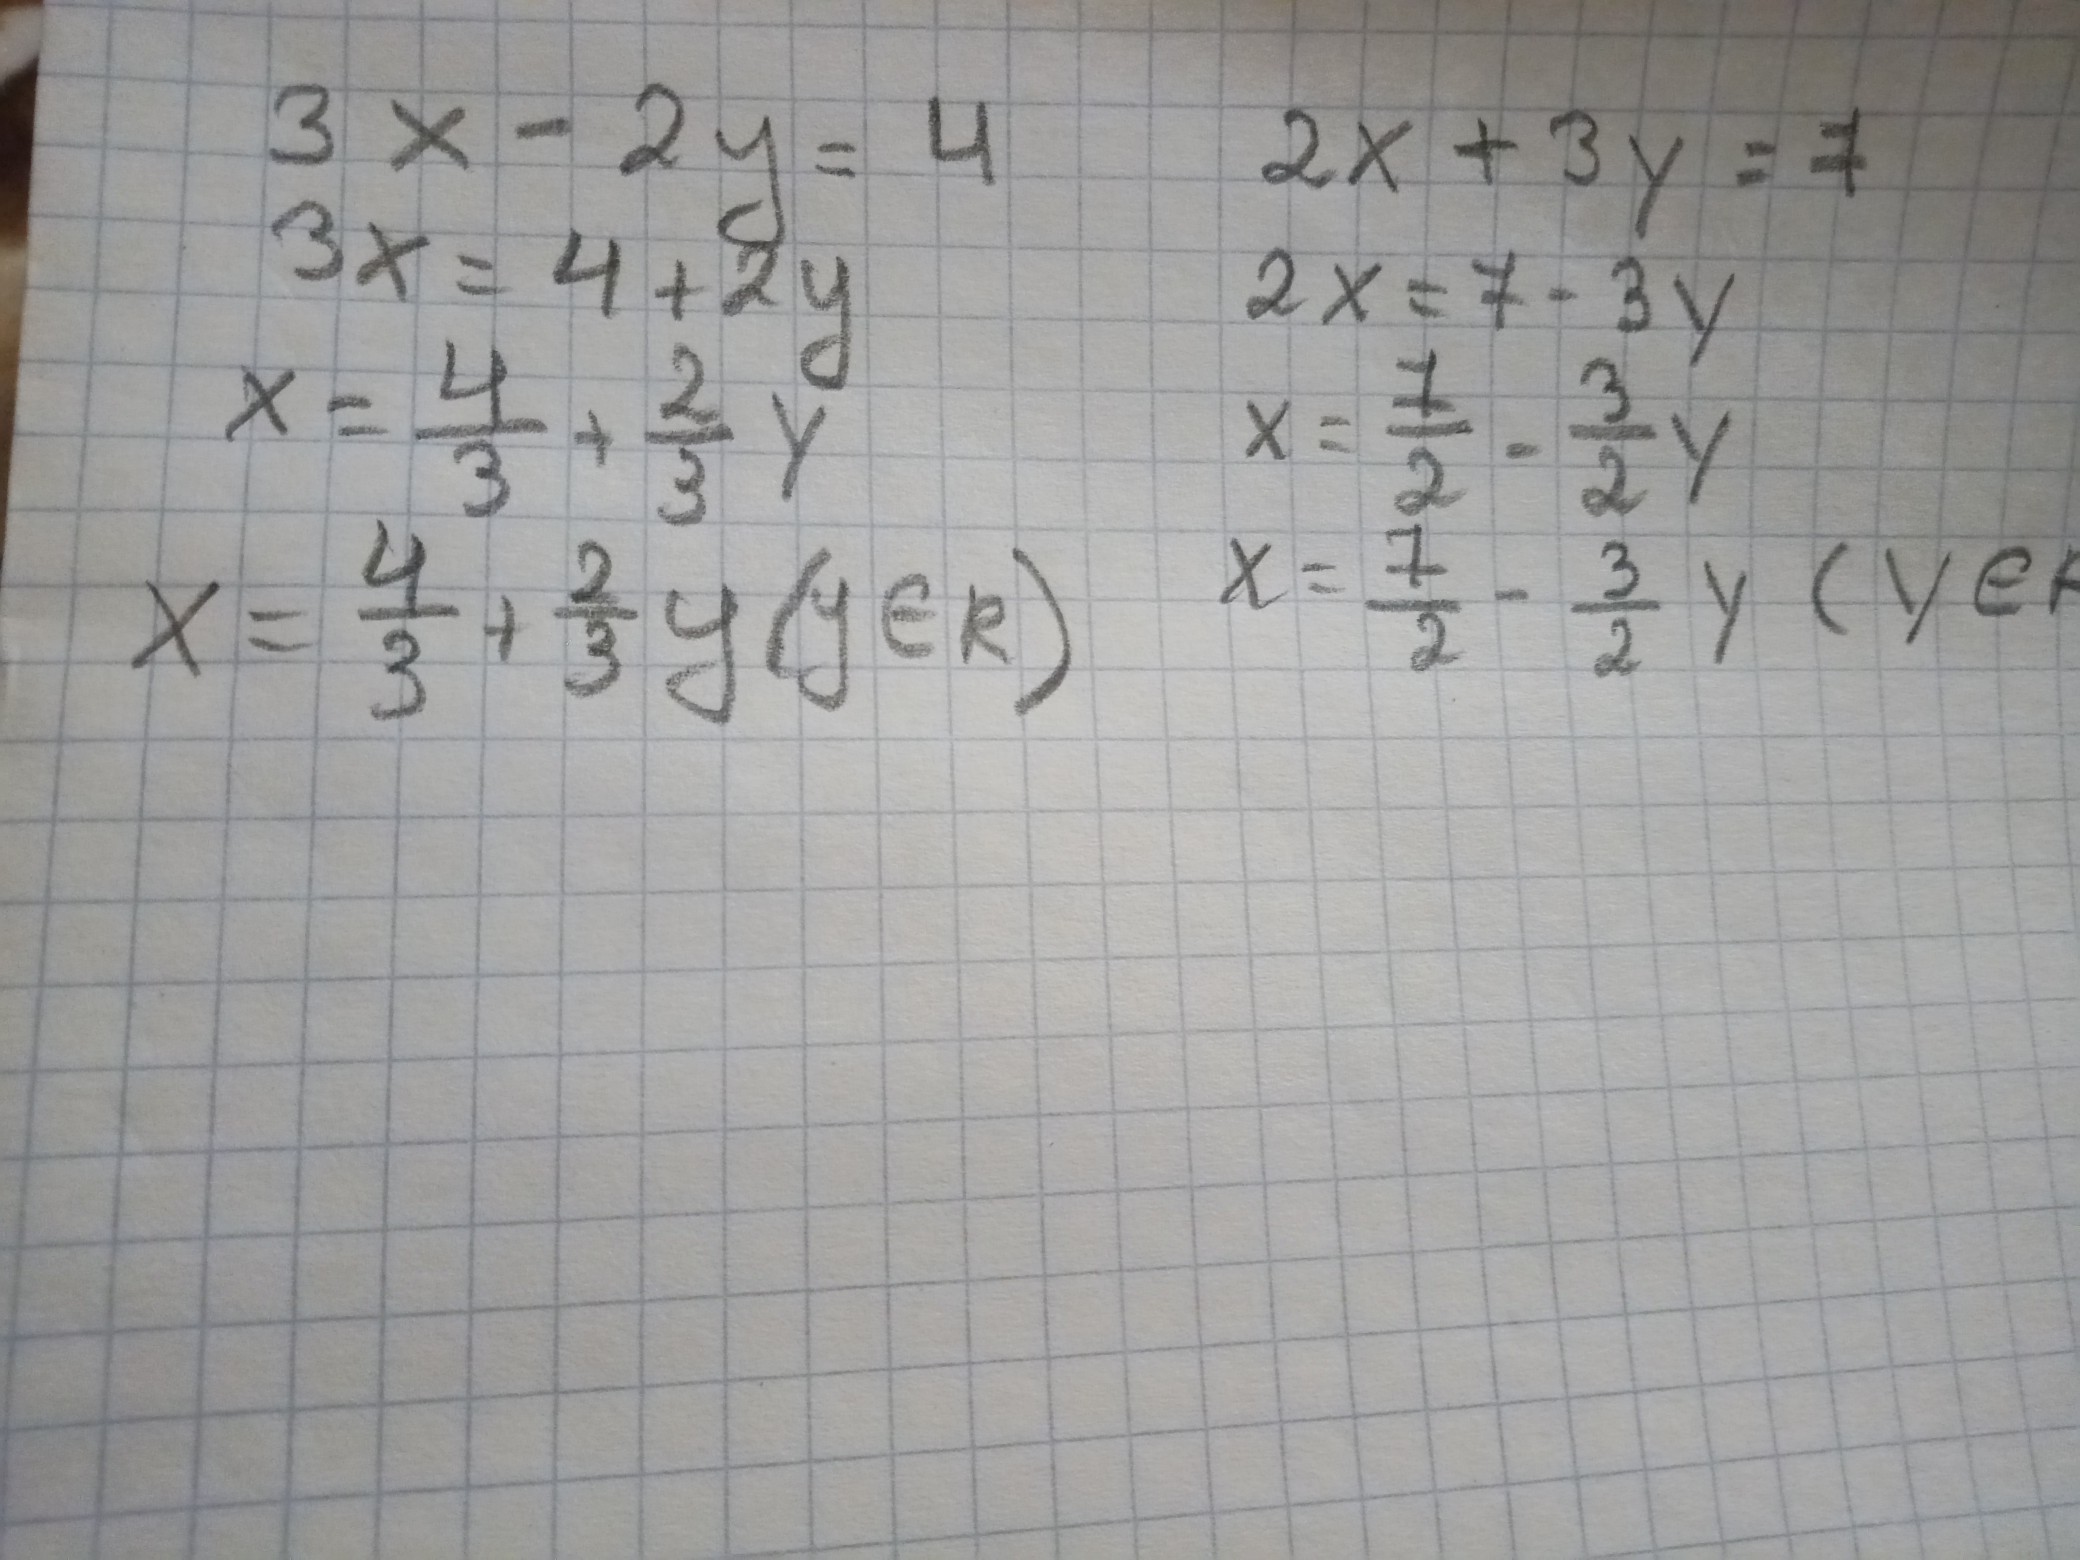 3x - 2y = 4
3x = 4 + 2y
x = 4/3 + 2/3 y
x = 4/3 + 2/3 y (y ∈ R)
2x + 3y = 7
2x = 7 - 3y
x = 7/2 - 3/2 y
x = 7/2 - 3/2 y (y ∈ R